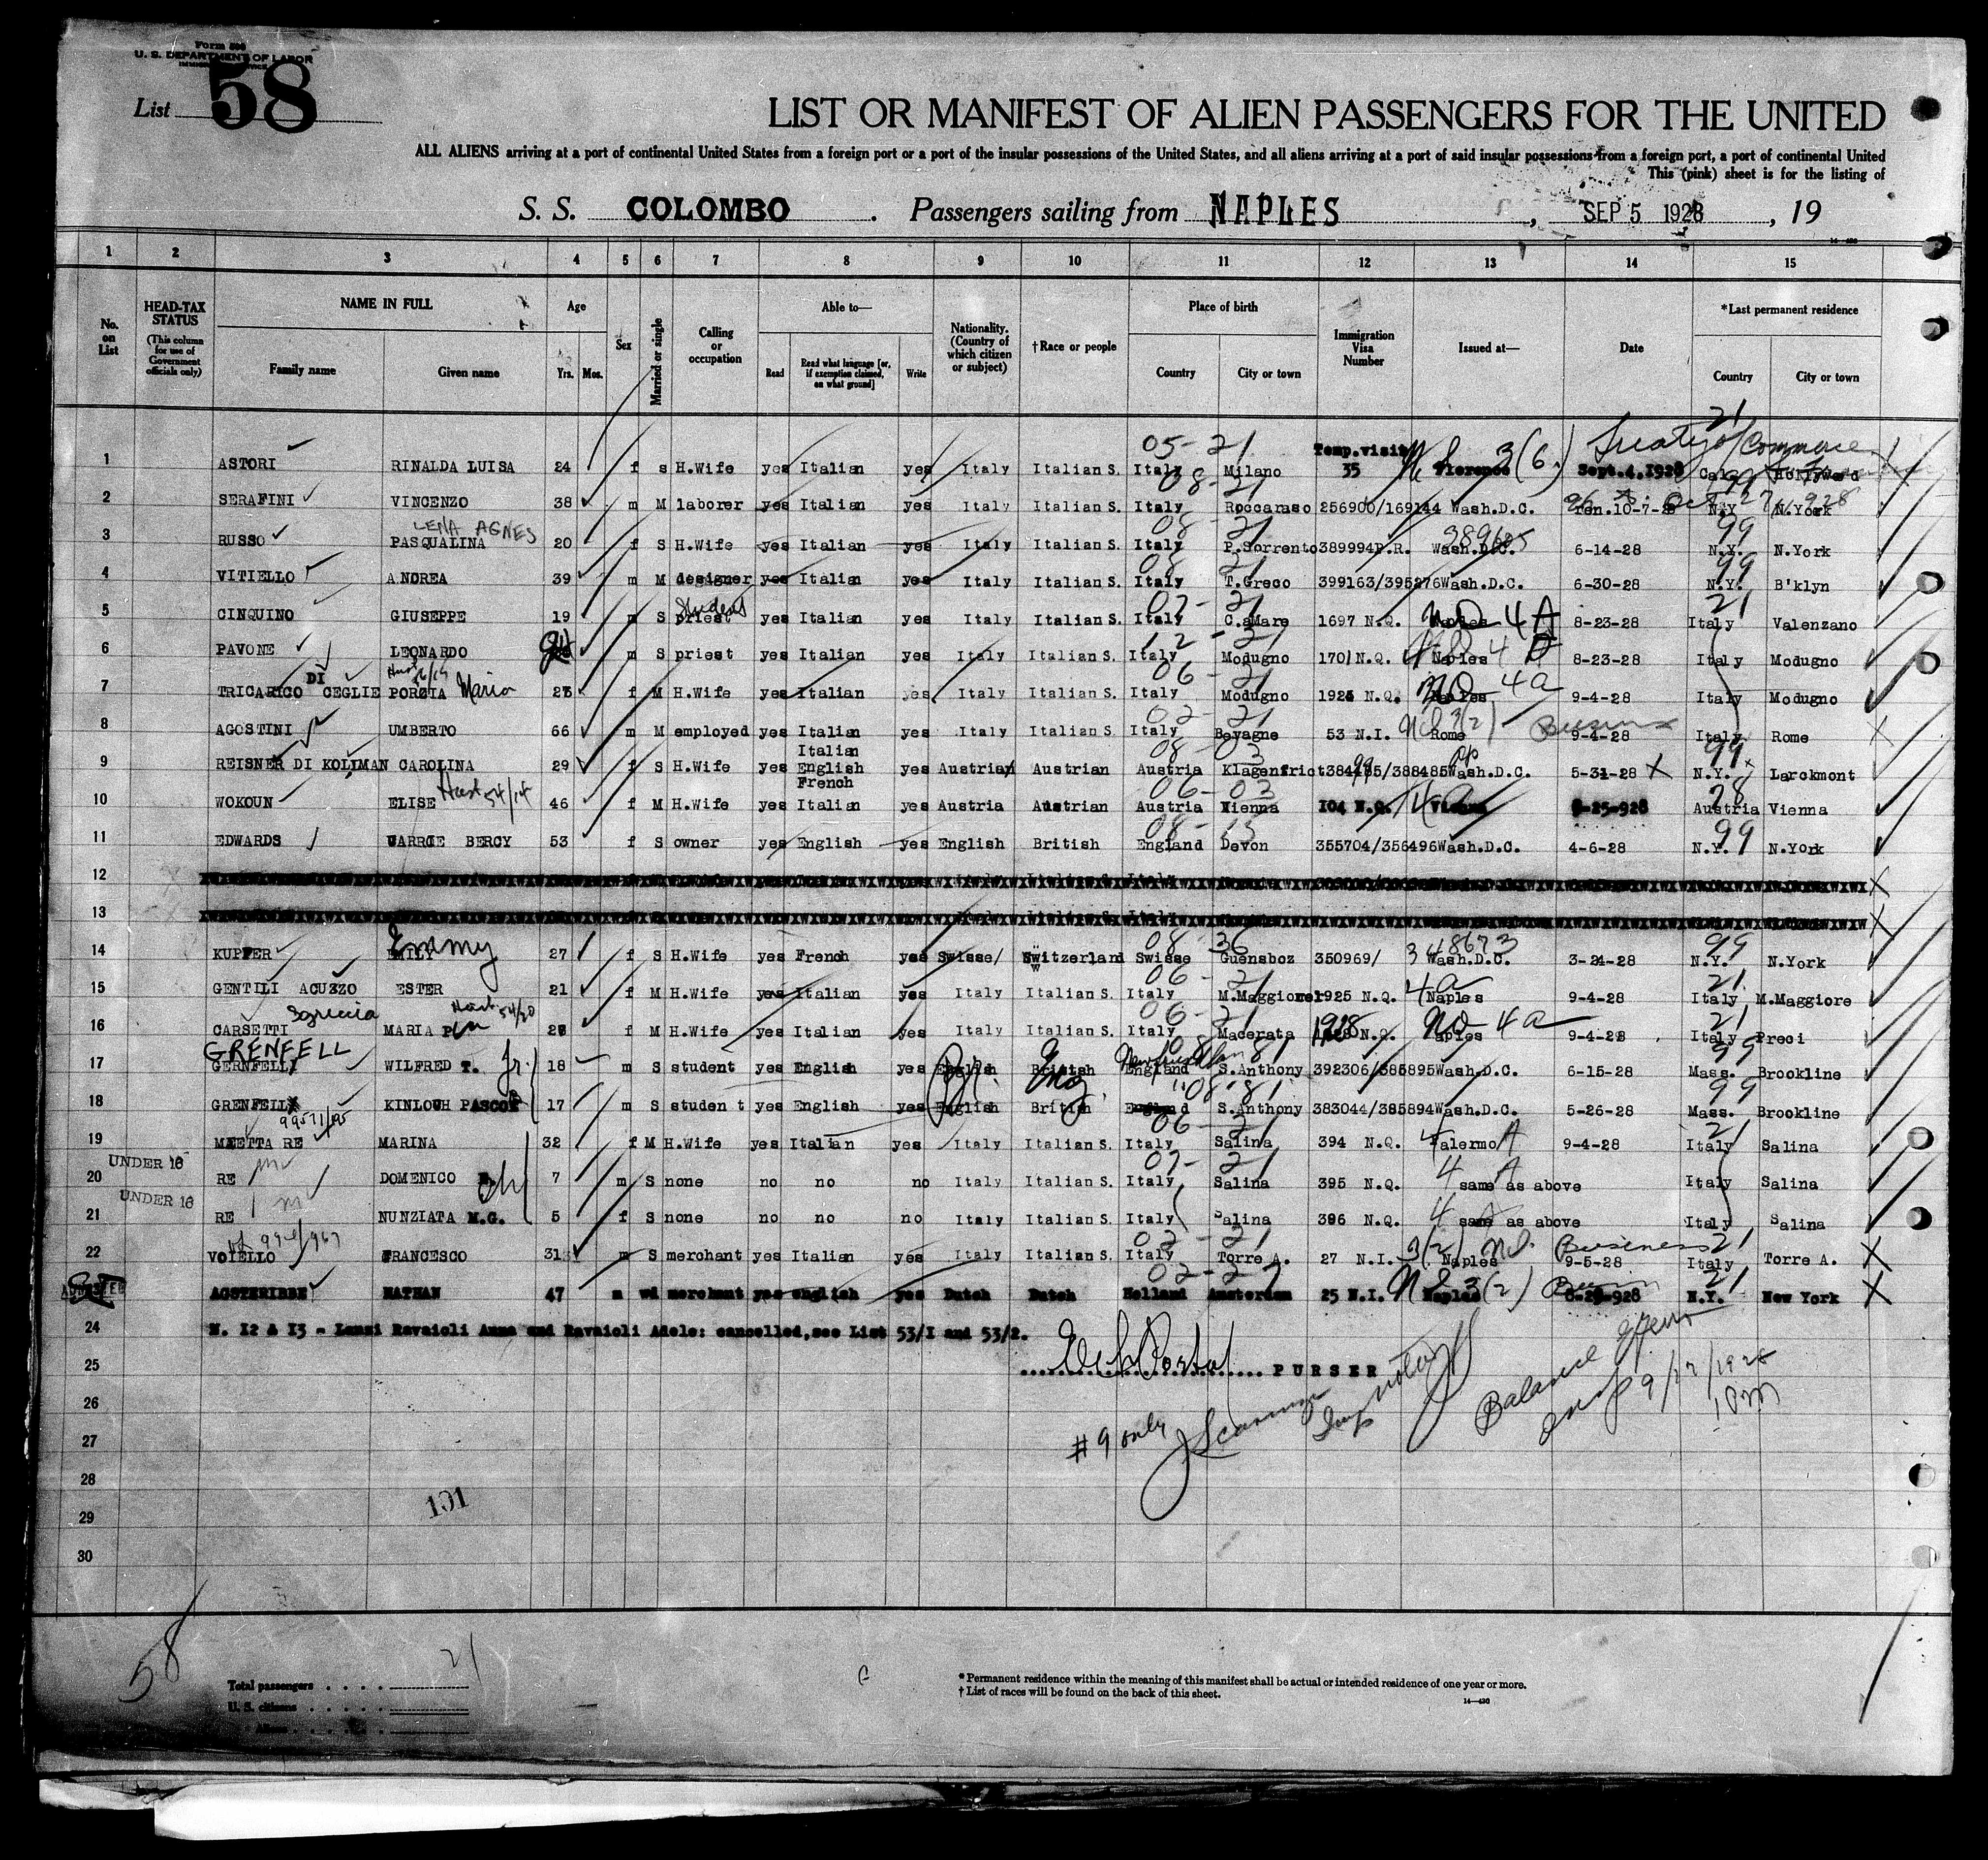 Form 500
U. S. DEPARTMENT OF LABOR
List 58
LIST OR MANIFEST OF ALIEN PASSENGERS FOR THE UNITED
ALL ALIENS arriving at a port of continental United States from a foreign port or a port of the insular possessions of the United States, and all aliens arriving at a port of said insular possessions from a foreign port, a port of continental United
This (pink) sheet is for the listing of
S. S. COLOMBO . Passengers sailing from NAPLES , SEP 5 1928 , 19
1 2 3 4 5 6 7 8 9 10 11 12 13 14 15
No. on List HEAD-TAX STATUS (This column for use of Government officials only) NAME IN FULL Age Sex Married or single Calling or occupation Able to— Nationality. (Country of which citizen or subject) †Race or people Place of birth Immigration Visa Number Issued at— Date *Last permanent residence
Family name Given name Yrs. Mos. Read Read what language [or, if exemption claimed, on what ground] Write Country City or town Country City or town
05-21 Temp.visit 3(6) Treaty of Commerce 21
1 ASTORI RINALDA LUISA 24 f s H.Wife yes Italian yes Italy Italian S. Italy Milano 35 Florence Sept.4.1928 Cal.
08-21 99
2 SERAFINI VINCENZO 38 m M laborer yes Italian yes Italy Italian S. Italy Roccaraso 256900/169144 Wash.D.C. N.Y. N.York
LENA AGNES 08 21 389685 99
3 RUSSO PASQUALINA 20 f S H.Wife yes Italian yes Italy Italian S. Italy P.Sorrento 389994P.R. Wash.D.C. 6-14-28 N.Y. N.York
08 21 99
4 VITIELLO ANDREA 39 m M designer yes Italian yes Italy Italian S. Italy T.Greco 399163/395276 Wash.D.C. 6-30-28 N.Y. B'klyn
Student 07-21 21
5 CINQUINO GIUSEPPE 19 m S priest yes Italian yes Italy Italian S. Italy C.aMare 1697 N.Q. Naples NO 4A 8-23-28 Italy Valenzano
12-21
6 PAVONE LEONARDO m S priest yes Italian yes Italy Italian S. Italy Modugno 1701 N.Q. Naples 4 8-23-28 Italy Modugno
DI 06-21
7 TRICARICO CEGLIE PORZIA Maria f M H.Wife yes Italian yes Italy Italian S. Italy Modugno N.Q. NO 4a 9-4-28 Italy Modugno
02-21 3(2) Business
8 AGOSTINI UMBERTO 66 m M employed yes Italian yes Italy Italian S. Italy Bevagne 53 N.I. Rome 9-4-28 Italy Rome
Italian 08-03 99
9 REISNER DI KOLLMAN CAROLINA 29 f S H.Wife yes English yes Austrian Austrian Austria Klagenfrict /388485 Wash.D.C. 5-31-28 N.Y. Larckmont
French
06-03 28
10 WOKOUN ELISE 46 f M H.Wife yes Italian yes Austria Austrian Austria Wienna 104 N.Q. 4a Vienna 8-25-928 Austria Vienna
08-13 99
11 EDWARDS CARRIE BERCY 53 f S owner yes English yes English British England Devon 355704/356496 Wash.D.C. 4-6-28 N.Y. N.York
12
13
Emmy 08 36 348673 99
14 KUPFER EMILY 27 f S H.Wife yes French yes Swisse/ Switzerland Swisse Guensboz 350969/ Wash.D.C. 3-24-28 N.Y. N.York
06-21 21
15 GENTILI ACUZZO ESTER 21 f M H.Wife yes Italian yes Italy Italian S. Italy M.Maggiore 1925 N.Q. 4a Naples 9-4-28 Italy M.Maggiore
Sgreccia 06-21 21
16 CARSETTI MARIA f M H.Wife yes Italian yes Italy Italian S. Italy Macerata 1928 N.Q. NO 4a Naples 9-4-28 Italy Preci
GRENFELL 99
17 GERNFELL WILFRED T. Jr. 18 m S student yes English yes English British England S.Anthony 392306/385895 Wash.D.C. 6-15-28 Mass. Brookline
Br. Eng " 08-81 99
18 GRENFELL KINLOUH PASCOE 17 m S student yes English yes English British England S.Anthony 383044/385894 Wash.D.C. 5-26-28 Mass. Brookline
06-21 21
19 RE MARINA 32 f M H.Wife yes Italian yes Italy Italian S. Italy Salina 394 N.Q. 4 Palermo A 9-4-28 Italy Salina
UNDER 16 07-21
20 RE DOMENICO 7 m S none no no no Italy Italian S. Italy Salina 395 N.Q. 4 A same as above Italy Salina
UNDER 16
21 RE NUNZIATA M.G. 5 f S none no no no Italy Italian S. Italy Salina 396 N.Q. 4 same as above Italy Salina
02-21 3(2) Business 21
22 VOIELLO FRANCESCO 31 m S merchant yes Italian yes Italy Italian S. Italy Torre A. 27 N.I. Naples 9-5-28 Italy Torre A.
02-27 3(2) 21
AGSTERIBBE NATHAN 47 m wd merchant yes english yes Dutch Dutch Holland Amsterdam 25 N.I. Naples N.Y. New York
24 N. 12 & 13 - Lanzi Ravaioli Anna and Ravaioli Adele: cancelled, see List 53/1 and 53/2.
25 PURSER
26
# 9 only
Balance
9/17/1928
27
28
29
30
101
58
Total passengers 21
U. S. citizens
Aliens
* Permanent residence within the meaning of this manifest shall be actual or intended residence of one year or more.
† List of races will be found on the back of this sheet.
14—430